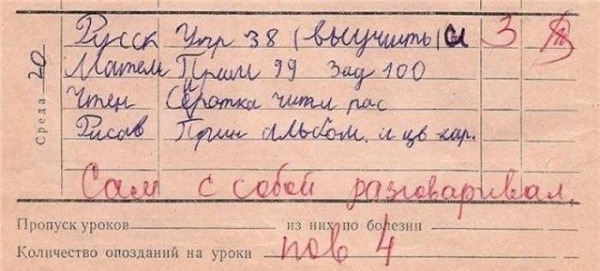 Русск Упр 38 (выучить) 3
Матем Прим 99 Зад 100
Чтен Серотка читл рас
Рисав Прин альбом. и цв кар.
Среда 20
Сам с собой разговаривал.
Пропуск уроков из них по болезни
Количество опозданий на уроки пов 4